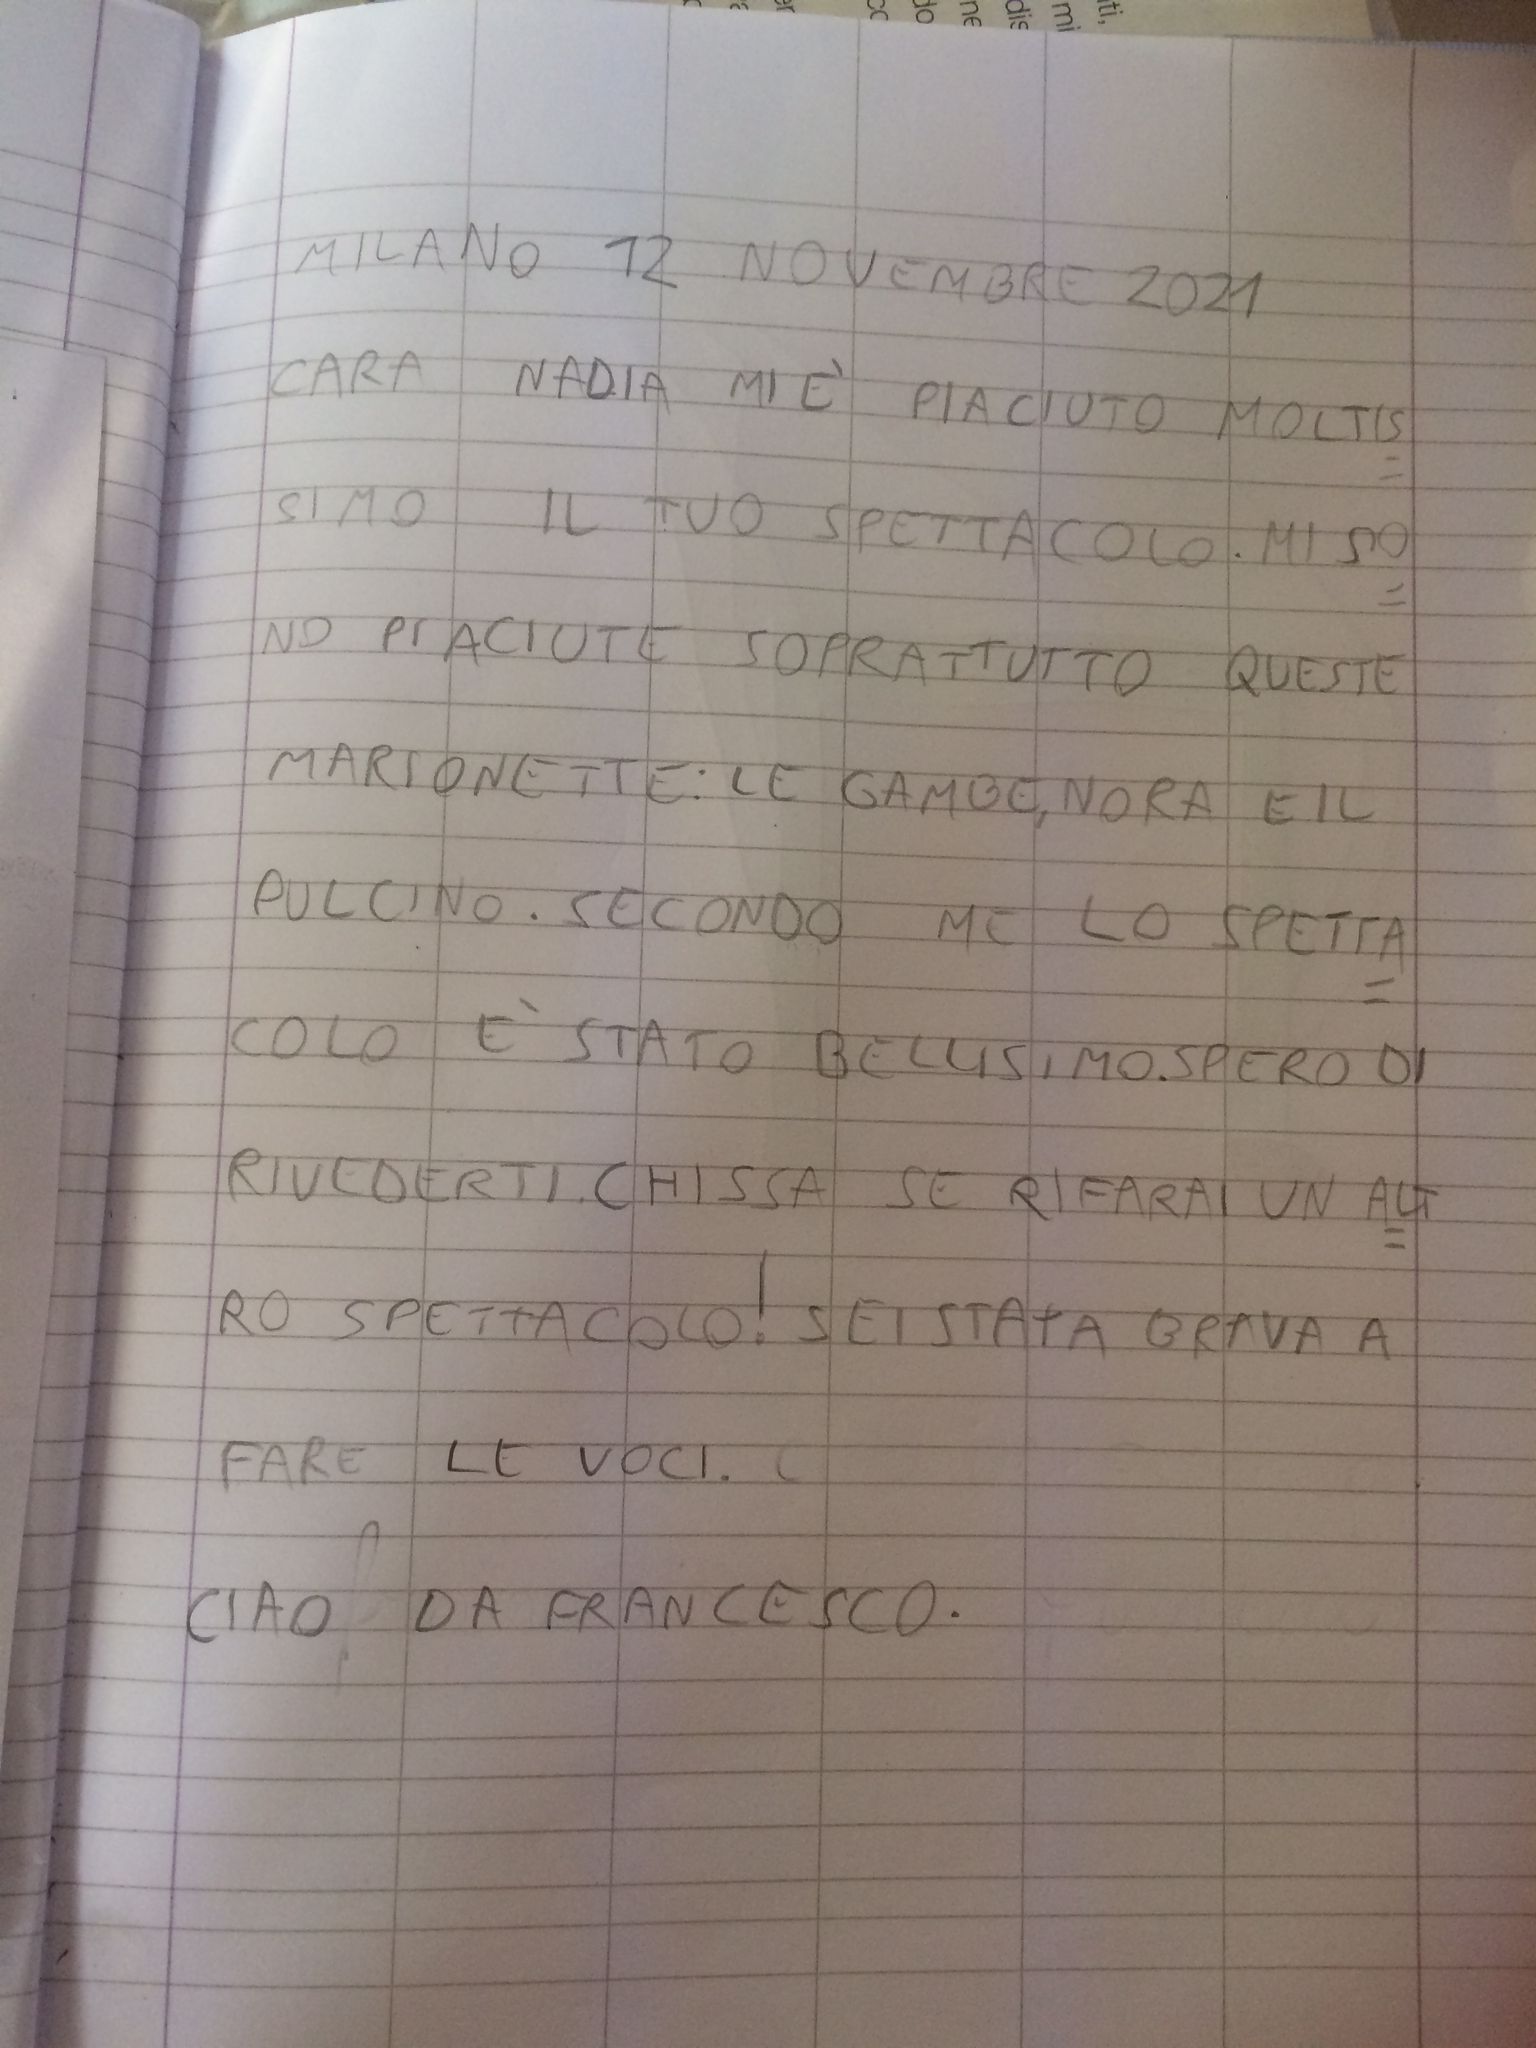 MILANO 12 NOVEMBRE 2021
CARA NADIA MI È PIACIUTO MOLTIS=
SIMO IL TUO SPETTACOLO. MI SO=
NO PIACIUTE SOPRATTUTTO QUESTE
MARIONETTE: LE GAMBE, NORA E IL
PULCINO. SECONDO ME LO SPETTA=
COLO È STATO BELLISIMO. SPERO DI
RIVEDERTI. CHISSA SE RIFARAI UN ALT=
RO SPETTACOLO! SEI STATA BRAVA A
FARE LE VOCI.
CIAO DA FRANCESCO.